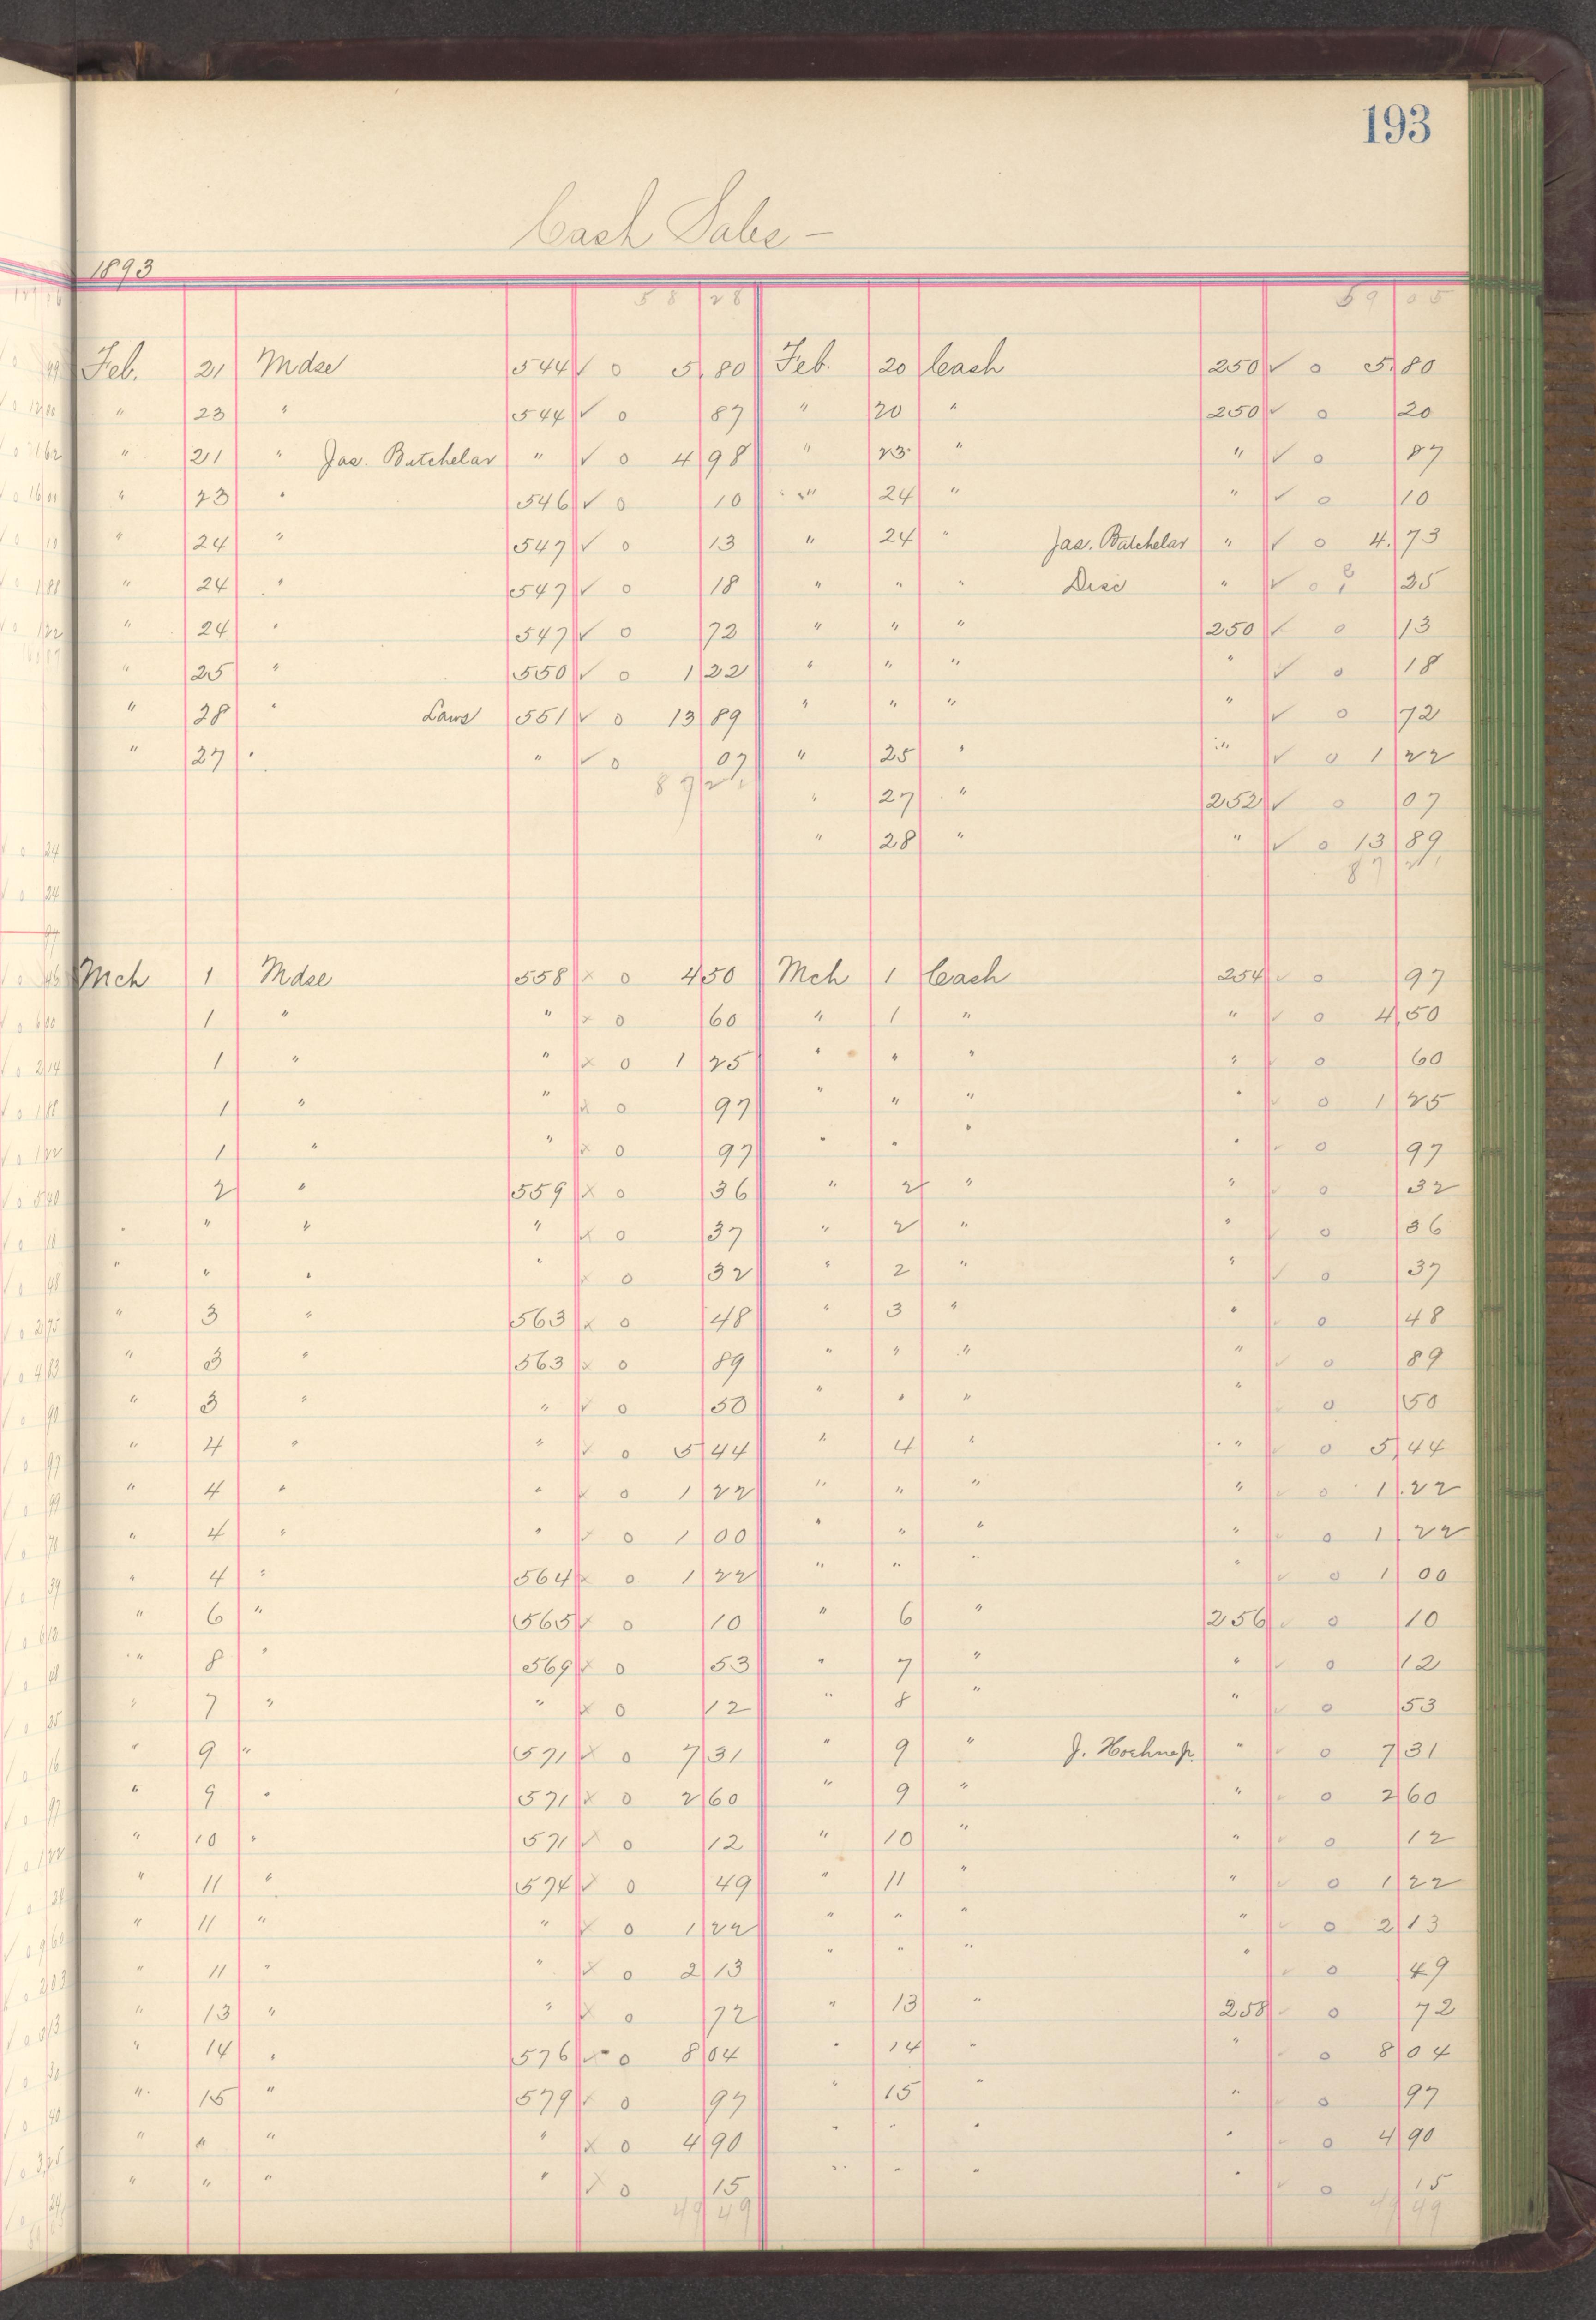 193
Cash Sales -
1893
58 28 59 05
Feb. 21 Mdse 544 ✓ o 5.80 Feb. 20 Cash 250 ✓ o 5.80
" 23 " 544 ✓ o 87 " 20 " 250 ✓ o 20
" 21 " Jas. Batchelar " ✓ o 4 98 " 23 " " ✓ o 87
" 23 " 546 ✓ o 10 " 24 " " ✓ o 10
" 24 " 547 ✓ o 13 " 24 " Jas. Batchelar " ✓ o 4.73
" 24 " 547 ✓ o 18 " " " Disc " ✓ o 25
" 24 " 547 ✓ o 72 " " " 250 ✓ o 13
" 25 " 550 ✓ o 1 22 " " " " ✓ o 18
" 28 " Laws 551 ✓ o 13 89 " " " " ✓ o 72
" 27 " " ✓ o 07 " 25 " " ✓ o 1 22
87 " 27 " 252 ✓ o 07
" 28 " " ✓ o 13 89
87
Mch 1 Mdse 558 x o 4 50 Mch 1 Cash 254 ✓ o 97
1 " " x o 60 " 1 " " ✓ o 4.50
1 " " x o 1 25 " " " " ✓ o 60
1 " " x o 97 " " " " ✓ o 1 25
1 " " x o 97 " " " " ✓ o 97
2 " 559 x o 36 " 2 " " ✓ o 32
" " " " x o 37 " 2 " " ✓ o 36
" " " " x o 32 " 2 " " ✓ o 37
" 3 " 563 x o 48 " 3 " " ✓ o 48
" 3 " 563 x o 89 " " " " ✓ o 89
" 3 " " ✓ o 50 " " " " o 50
" 4 " " ✓ o 5 44 " 4 " " ✓ o 5.44
" 4 " " x o 1 22 " " " " ✓ o 1.22
" 4 " " x o 1 00 " " " " ✓ o 1.22
" 4 " 564 x o 1 22 " " " " ✓ o 1 00
" 6 " 565 ✓ o 10 " 6 " 256 ✓ o 10
" 8 " 569 x o 53 " 7 " " ✓ o 12
" 7 " " x o 12 " 8 " " ✓ o 53
" 9 " 571 x o 7 31 " 9 " J. " ✓ o 7 31
" 9 " 571 x o 2 60 " 9 " " ✓ o 2 60
" 10 " 571 x o 12 " 10 " " ✓ o 12
" 11 " 574 x o 49 " 11 " " ✓ o 1 22
" 11 " " x o 1 22 " " " " ✓ o 2 13
" 11 " " x o 2 13 " " " " ✓ o 49
" 13 " " x o 72 " 13 " 258 ✓ o 72
" 14 " 576 ✓ o 8 04 " 14 " " ✓ o 8 04
" 15 " 579 x o 97 " 15 " " ✓ o 97
" " " " x o 4 90 " " " " ✓ o 4 90
" " " " x o 15 " " " " ✓ o 15
49 49 49 49